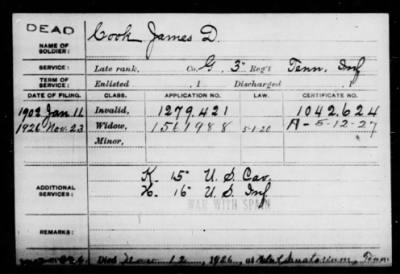 DEAD
NAME OF SOLDIER: Cook James D.
SERVICE: Late rank, Co. G, 3" Reg't Tenn. Inf
TERM OF SERVICE: Enlisted 1 Discharged 1
DATE OF FILING. CLASS. APPLICATION NO. LAW. CERTIFICATE NO.
1902 Jan 11 Invalid, 1279.421 1042.624
1926 Nov. 23 Widow, 1561988 5-1-20 A-5-12-27
Minor,
K. 15 U.S. Cav.
ADDITIONAL SERVICES: K. 16 U.S. Inf
WAR WITH SPAIN
REMARKS:
Died 12, 1926, at Sanatorium, Tenn